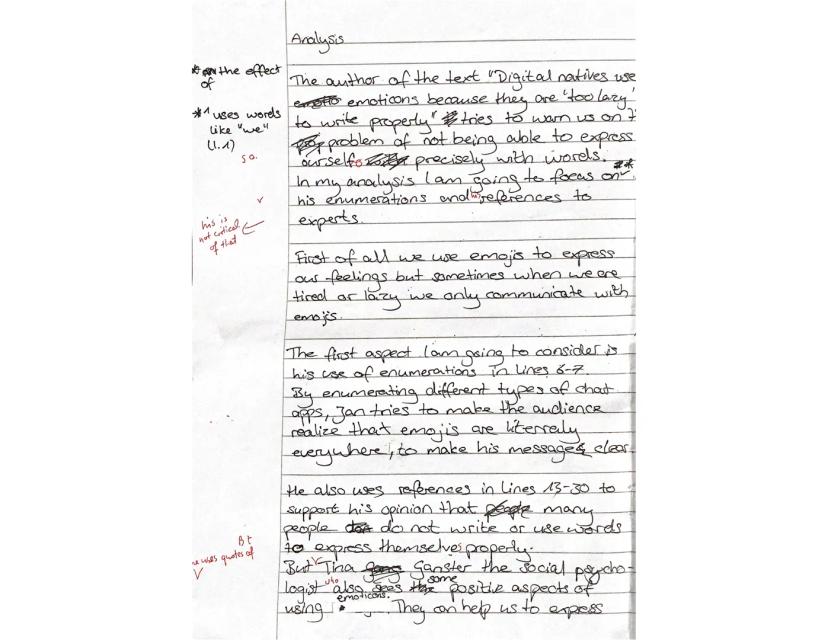 Analysis
the effect
of
*¹ uses words
like "we"
(l.1)
so.
his is
not critical
of that
The author of the text "Digital natives use
emoticons because they are 'too lazy'
to write properly" tries to warn us on
problem of not being able to express
ourselfs precisely with words.
In my analysis I am going to focus on **
his enumerations and his references to
experts.
First of all we use emojis to express
our feelings but sometimes when we are
tired or lazy we only communicate with
emojis.
The first aspect I am going to consider is
his use of enumerations in lines 6-7.
By enumerating different types of chat
apps, Jan tries to make the audience
realize that emojis are literrely
everywhere, to make his message clear.
He also uses references in lines 13-30 to
support his opinion that many
people do not write or use words
to express themselves properly.
Bt
uses quotes of
But Tina Ganster the social psycho-
logist also sees some positive aspects of
using emoticons. They can help us to express